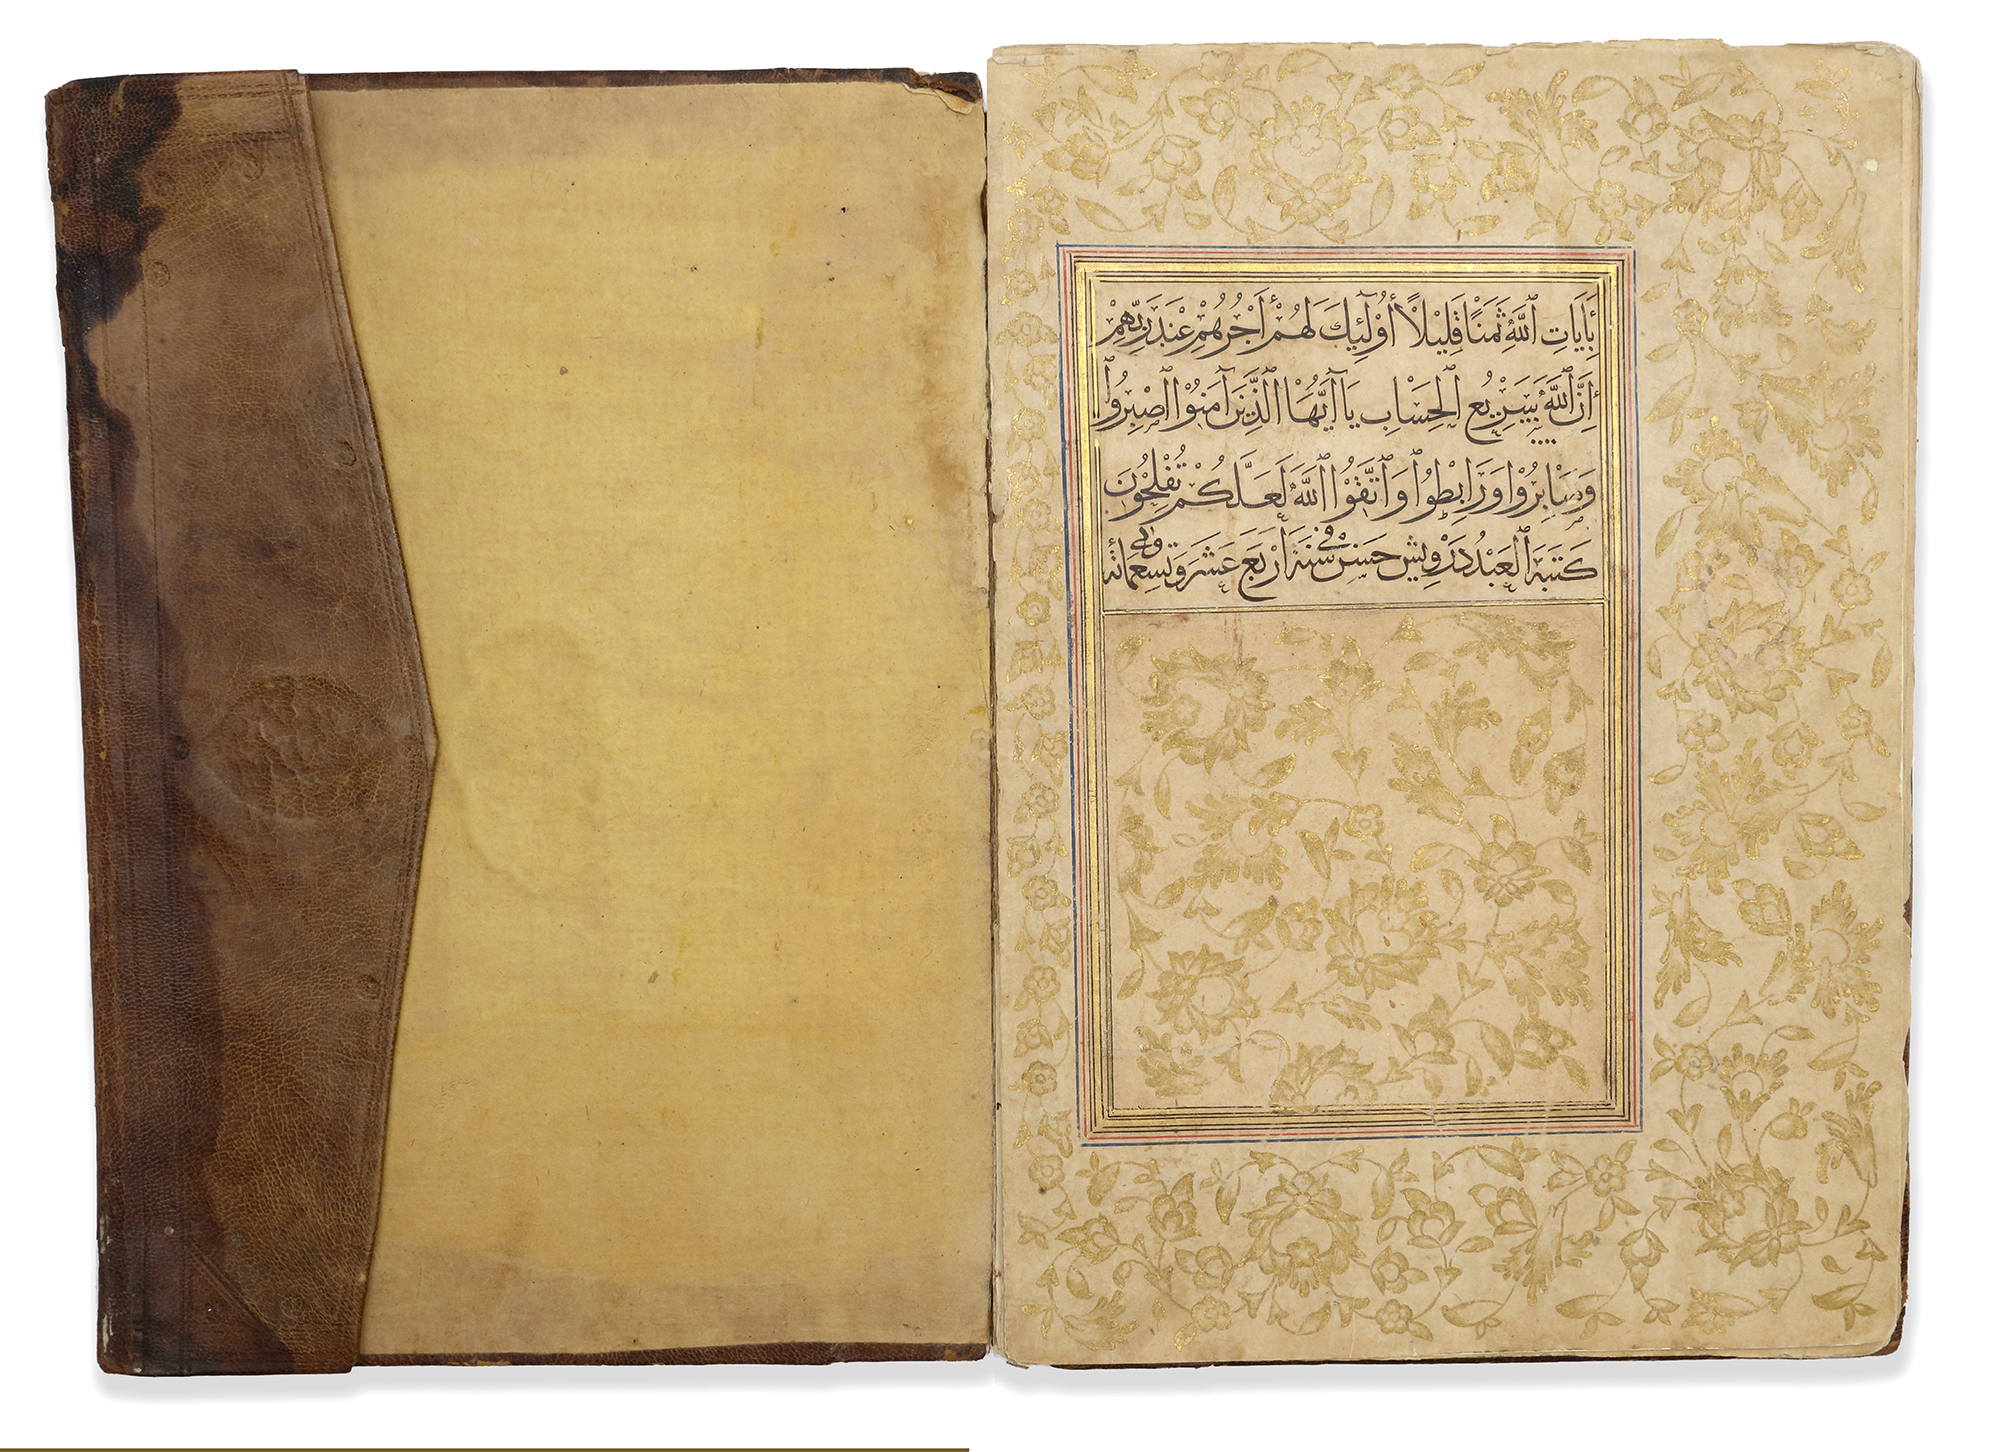 بِأَيَاتِ ٱللَّهِ ثَمَنًا قَلِيْلًا أُوْلَٓئِكَ لَهُمْ أَجْرُهُمْ عِنْدَ رَبِّهِمْ
إِنَّ ٱللَّهَ سَرِيْعُ ٱلْحِسَابِ يَآ أَيُّهَا ٱلَّذِيْنَ آمَنُوْا ٱصْبِرُوْا
وَصَابِرُوْا وَرَابِطُوْا وَٱتَّقُوْا ٱللَّهَ لَعَلَّكُمْ تُفْلِحُوْنَ
كَتَبَهُ ٱلْعَبْدُ دَرْوِيش حَسَن فِي سَنَةِ أَرْبَعَ عَشَرَ وَتِسْعِمِائَة